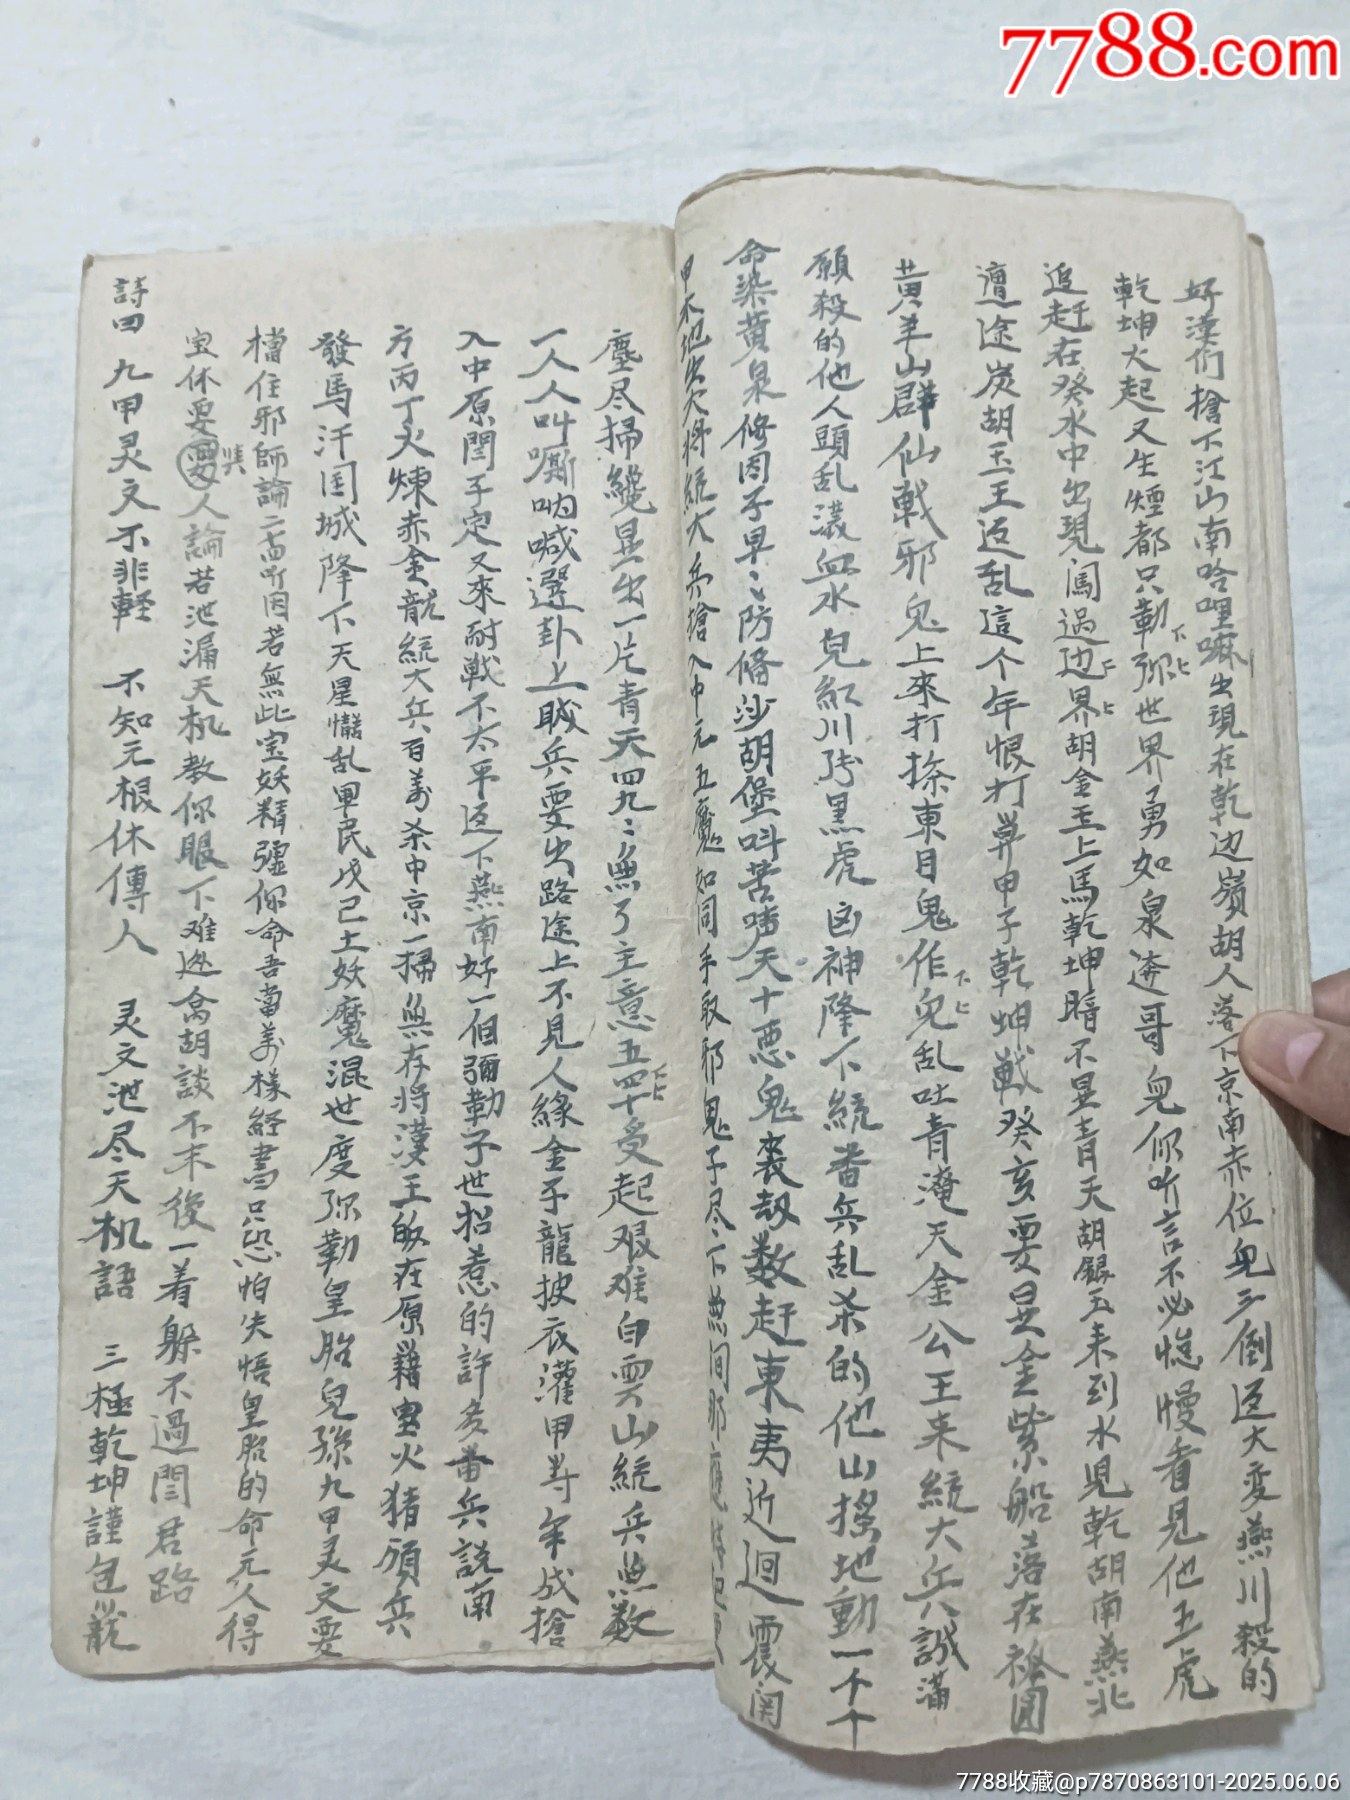 7788.com
好漢們搶下江山南哈哩嘛出現在乾边嶺胡人落下京南赤位兒三倒返大变燕川殺的
乾坤大起又生煙都只勒弥世界勇如泉逩哥兒你听言不必慌慢看見他五虎
追赶在癸水中出現闖過边界胡金玉上馬乾坤暗不显青天胡銀玉来到水児乾胡南燕北
遭途炭胡玉王返乱這个年恨打算甲子乾坤戰癸亥要显金紫船落在裕圓
黄羊山群仙戰邪鬼上來打捺東目鬼作鬼乱吐青淹天金公王来統大兵誠滿
願殺的他人頭乱滚血水兒紅川 黒虎凶神降下統番兵乱杀的他山搖地動一千个
命染黄泉修圀子早々防俻沙胡堡叫苦嗹天十恶鬼裘刼数赶東夷近迴震関
甲不 出 将統大兵搶入中元五魔如同手取邪鬼子尽下無间
塵尽掃纔显出一片青天四九々無了主意五四十受起艰难白雲山統兵無数
一人人叫嘶呐喊選卦上賊兵要出路途上不見人緣金子龍披衣灌甲 年成搶
入中原閆子定又來耐戰不太平返下燕南好一個彌勒子世招惹的許多番兵説南
方丙丁火煉赤金龍統大兵百萬杀中京一掃無存将漢王皈在原籍 火猪頒兵
發馬汗囯城降下天星慛乱軍民戊己土妖魔混世度弥勒皇胎兒孫九甲灵文要
檣住邪師論二高听因若無此宝妖精彊你命吾當萬樣経書只恐怕失悟皇胎的命元人得
宝休要 人論若泄漏天机教你眼下难逃禽胡談不末後一着躲不過閆君路
詩曰 九甲灵文不非輕 不知元根休傳人 灵文泄尽天机語 三極乾坤謹包籠
7788收藏@p7870863101-2025.06.06